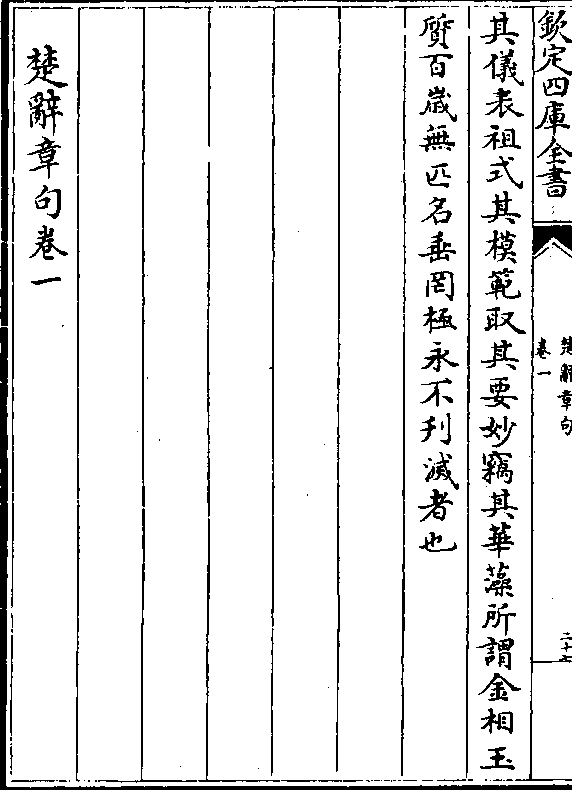 欽定四庫全書
楚辭章句
卷一
二十六
其儀表祖式其模範取其要妙竊其華藻所謂金相玉
質百歲無匹名垂罔極永不刋滅者也
楚辭章句卷一